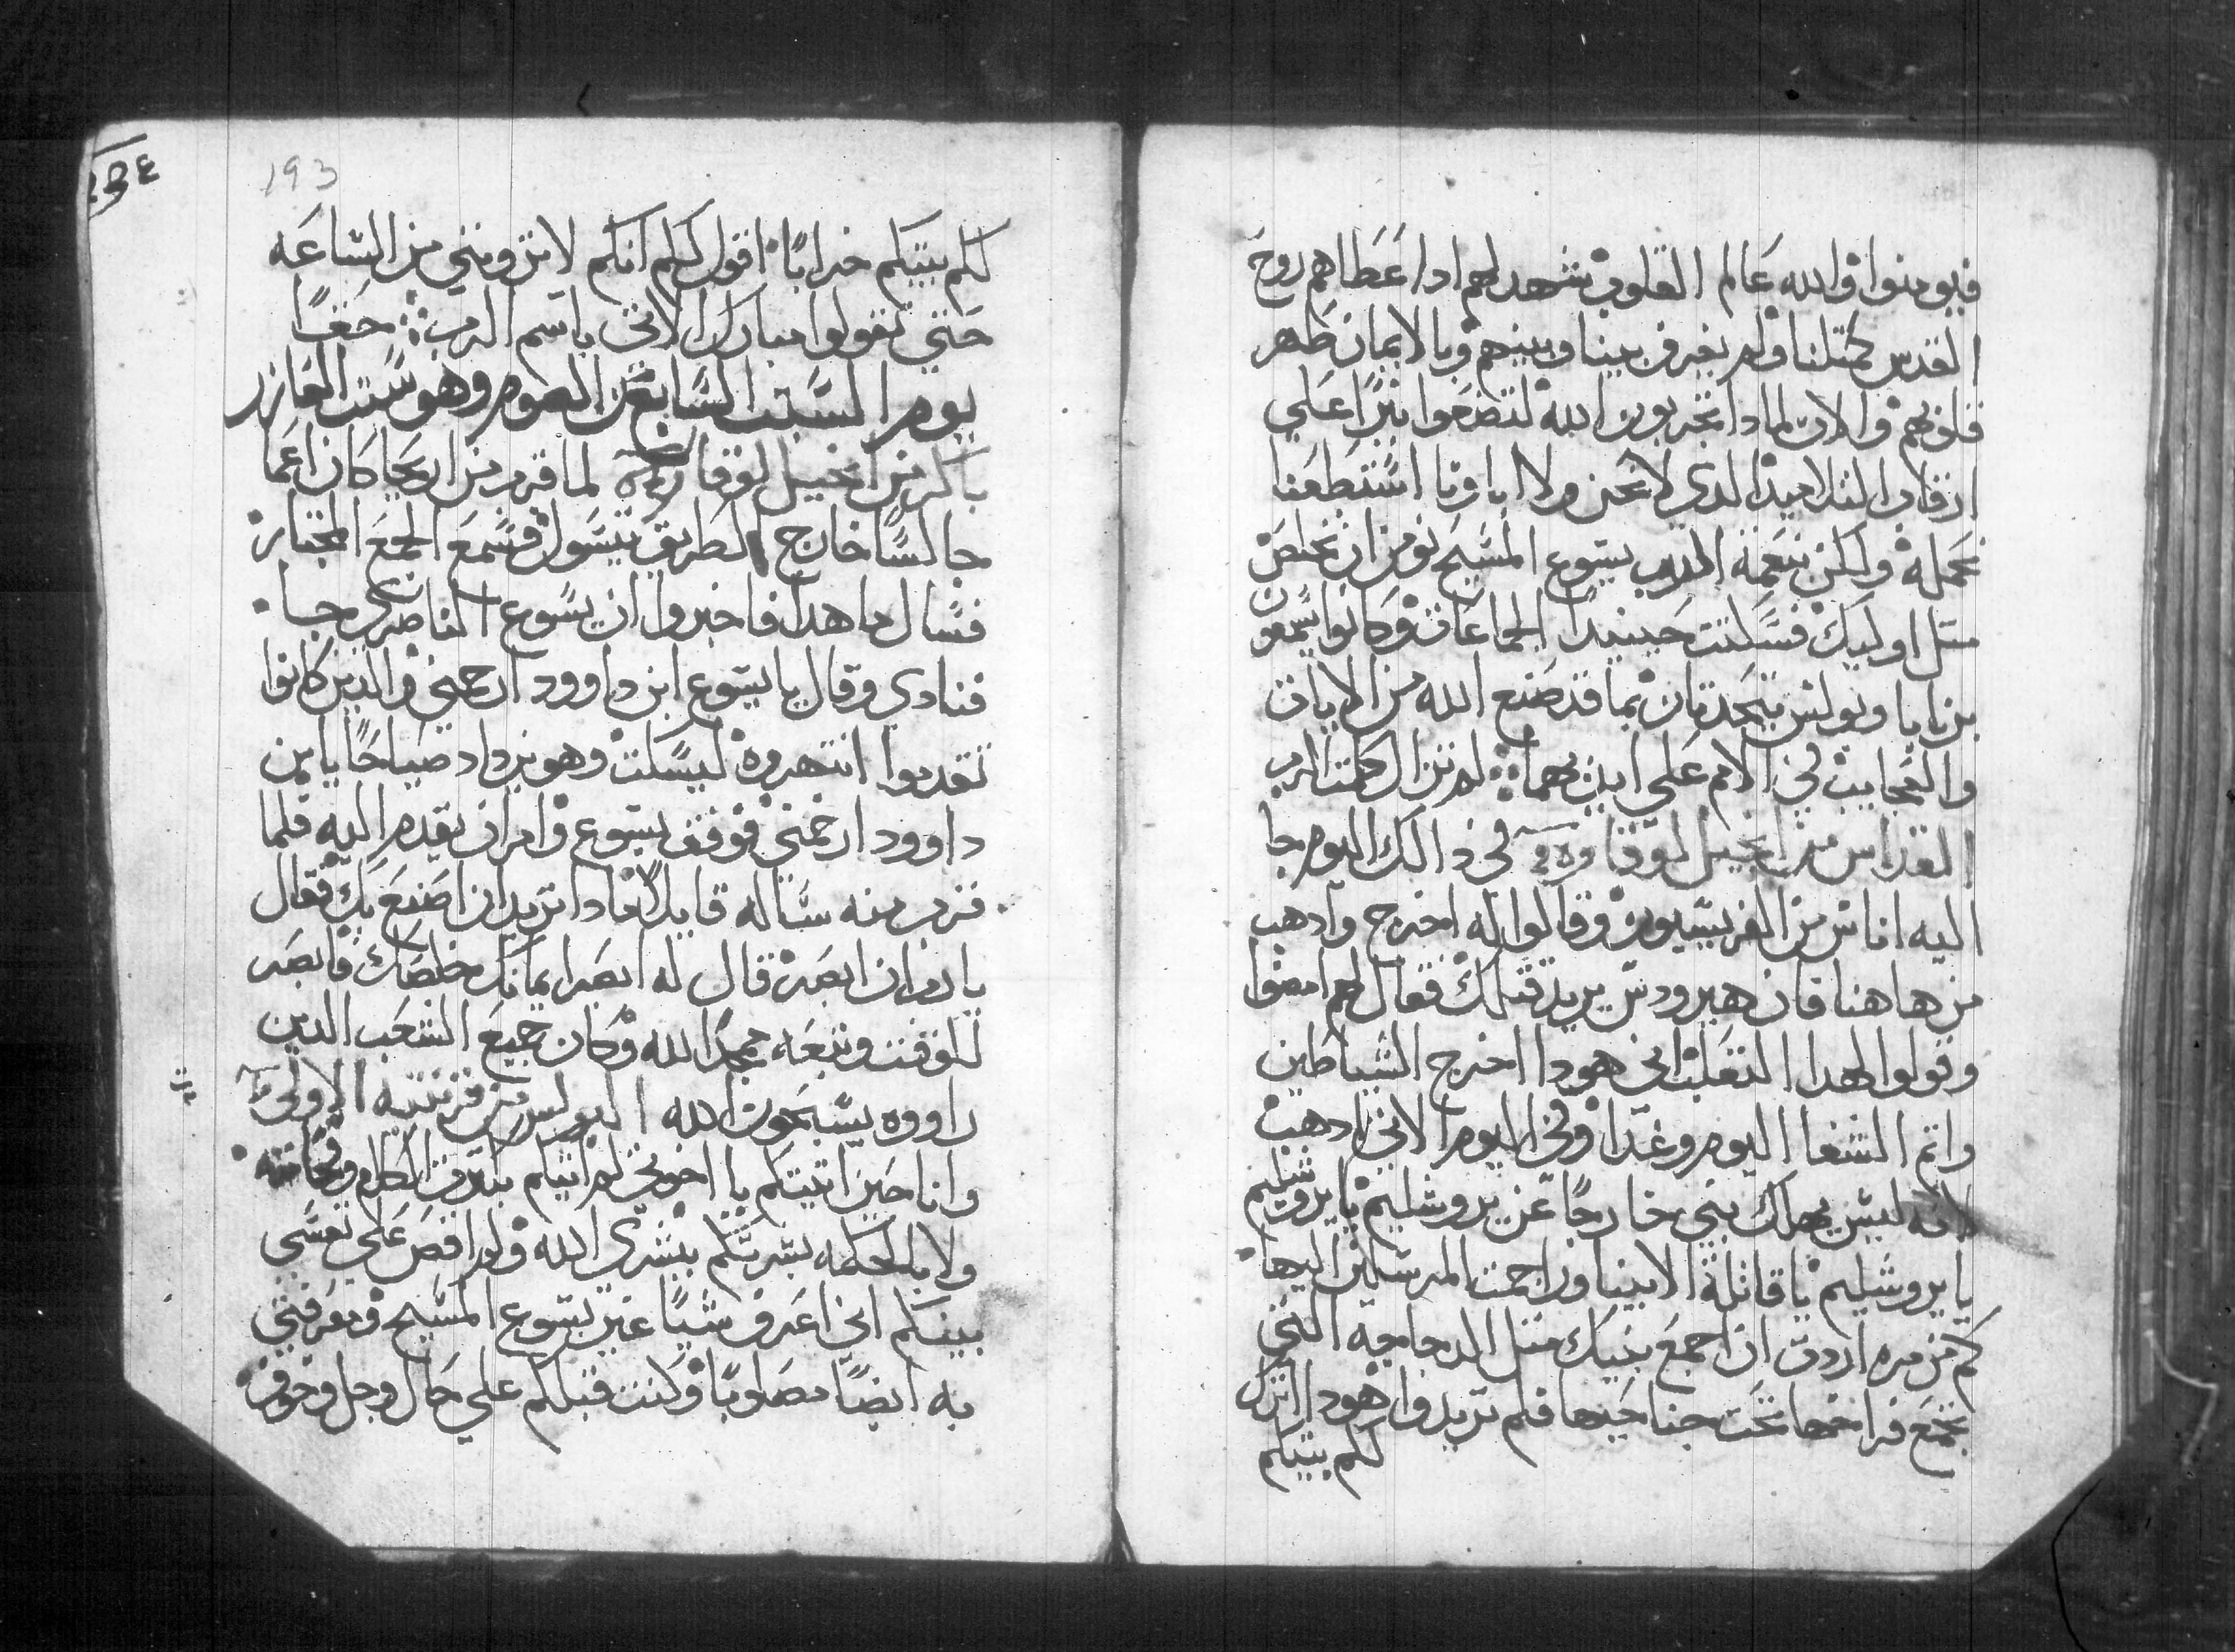 فيومنوا والله عالم القلوب يشهد لهم ادا عطاهم روح
القدس كمتلنا ولم يفرق بيننا وبينهم وبالايمان طهر
قلوبهم والان لمادا تجربون الله لتضعوا نيرًا علي
ارقاب التلاميد الدي لا نحن ولا اباونا استطعنا
نحمله ولكن بنعمة الرب يسوع المسيح نومن ان نخلص
متل اوليك فسكتت حينيدًا الجماعات وكانوا يسمعون
برنابا وبولس يتحدتان بما قد صنع الله من الايات
والعجايب في الامم علي ايديهما لم تزال كلمت الرب
القداس من انجيل لوقا في دالك اليوم جا
اليه اناس من الفريسيون وقالوا له اخرج وادهب
من هاهنا فان هيرودس يريد قتلك فقال لهم امضوا
وقولوا لهدا التعلب اني هودا اخرج الشياطين
واتم الشفا اليوم وغدًا وفي اليوم الاتي ادهب
لانه ليس يهلك نبي خارجًا عن يروشليم يا يروشليم
يا يروشليم يا قاتلة الانبيا وراجمت المرسلين اليها
كم من مره اردت ان اجمع بنيك متل الدجاجه التي
تجمع فراخها تحت جناحيها فلم تريدوا هودا اترك
لكم بيتكم
193
لكم بيتكم خرابًا اقول لكم انكم لا ترونني من الساعه
حتي تقولوا مبارك الاتي باسم الرب حقًا
يوم السبت السابع من الصوم وهو سبت العازر
باكر من انجيل لوقا لما قرب من اريحا كان اعما
جالسًا خارج الطريق يتسول فسمع الجمع المجتاز
فسال ما هدا فاخبروا ان يسوع الناصري جا
فنادي وقال يا يسوع ابن داوود ارحمني والدين كانوا
تقدموا انتهروه ليسكت وهو يزداد صياحًا يا بن
داوود ارحمني فوقف يسوع وامر ان يقدم اليه فلما
قرب منه ساله قايلًا مادا تريد ان اصنع بك فقال
يا رب ان ابصر قال له ابصر ايمانك خلصك فابصر
للوقت وتبعه يمجد الله وكان جميع الشعب الدين
راووه يسبحون الله البولس من قرنتيه الاولي
وانا حين اتيتكم يا اخوتي لم اتيكم بشرف الكلام
ولا بالحكمه بشرتكم ببشري الله ولم اقص علي نفسي
بينكم اني اعرف شيًا غير يسوع المسيح ومعرفتي
به ايضًا مصلوبًا وكنت قبلكم علي حال وجل وخوف